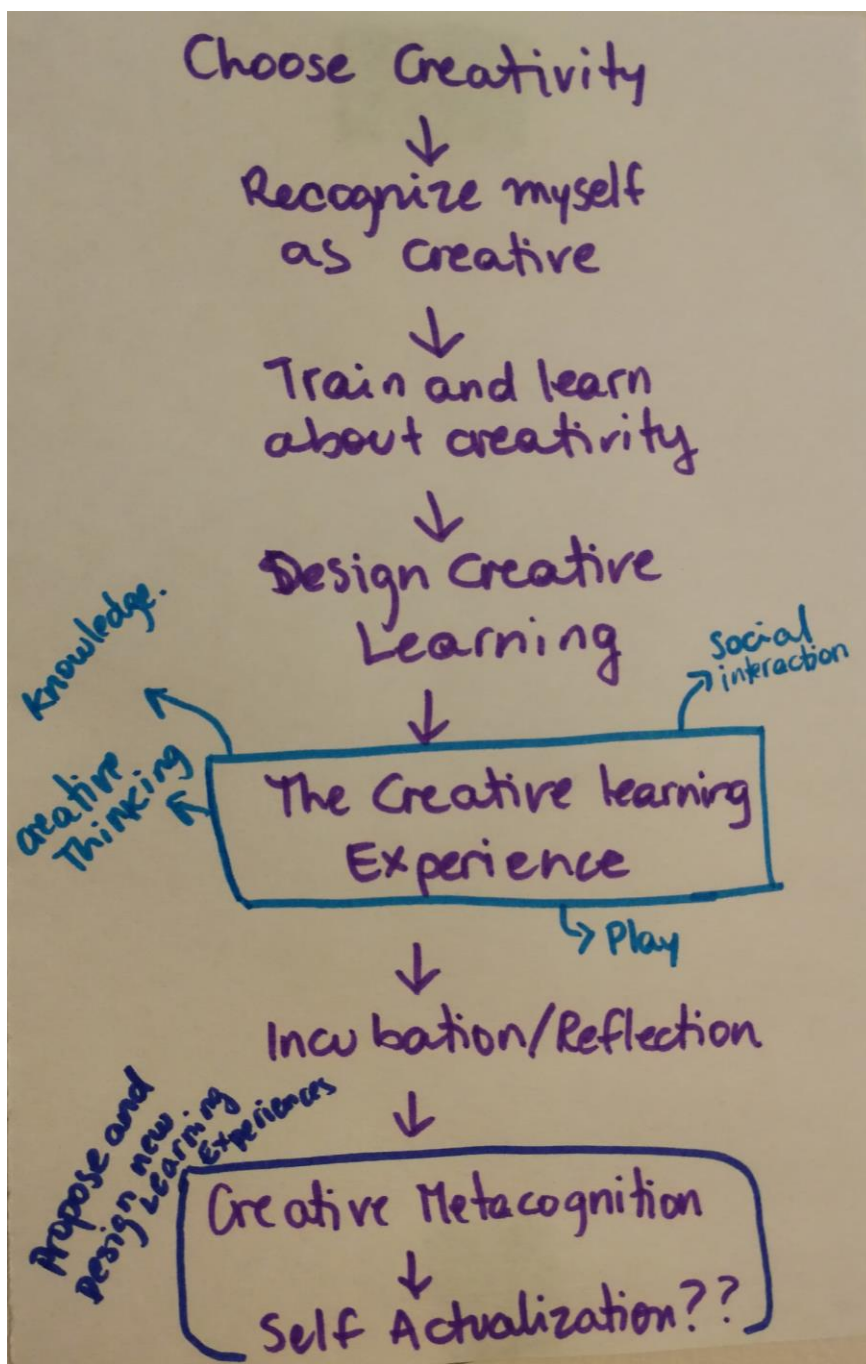 Choose Creativity
Recognize myself
as creative
Train and learn
about creativity
Design Creative
Learning
knowledge.
Social
interaction
Creative
Thinking
The Creative learning
Experience
Play
Incubation/Reflection
Propose and
Design new
Learning
Experiences
Creative Metacognition
Self Actualization??